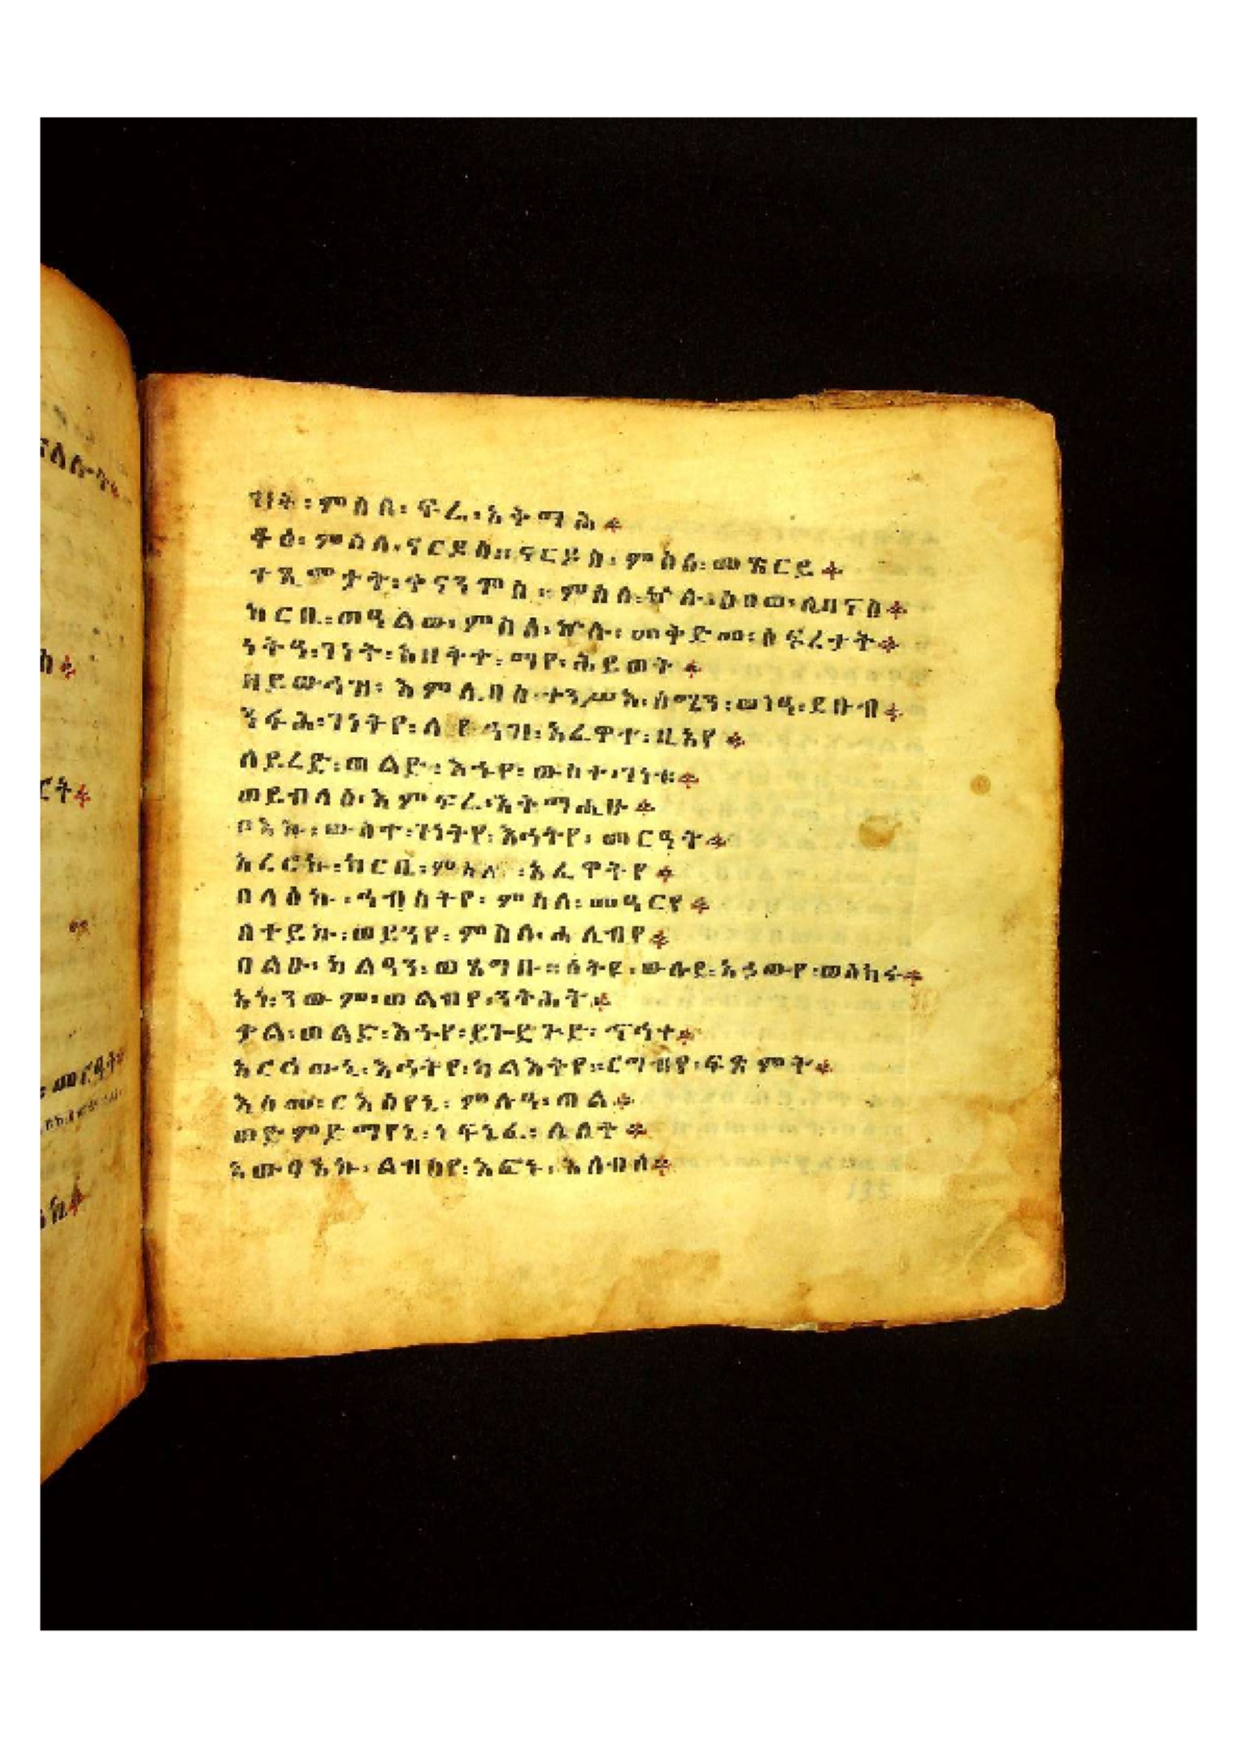 ገነት፡ ምስለ፡ ፍሬ፡ አትማሕ።
ቆዕ፡ ምስለ፡ ናርዶስ። ናርዶስ፡ ምስለ፡ መጽርይ።
ምስለ፡ ኵሉ፡ ዕፀወ፡ ሊባኖስ።
ከርቤ፡ ወዓልው፡ ምስለ፡ ኵሉ፡ መቅድመ፡ ዕፍረታት።
ነትዓ፡ ገነት፡ አዘቅተ፡ ማየ፡ ሕይወት።
ዘይውሕዝ፡ እምሊባኖስ፡ ተንሥእ፡ ሰሜን፡ ወነዓ፡ ደቡብ።
ንፋሕ፡ ገነትየ፡ ለየዓዝ፡ አፈዋተ፡ ዚአየ።
ለይረድ፡ ወልድ፡ እኁየ፡ ውስተ፡ ገነቱ።
ወይብላዕ፡ እምፍሬ፡ አትማሒሁ።
ቦእኩ፡ ውስተ፡ ገነትየ፡ እኅትየ፡ መርዓት።
አረርኩ፡ ከርቤ፡ ምስለ፡ አፈዋትየ።
በላዕኩ፡ ኅብስትየ፡ ምስለ፡ መዓርየ።
ሰተይኩ፡ ወይንየ፡ ምስለ፡ ሐሊብየ።
በልዑ፡ ካልዓን፡ ወጽግቡ። ሰትዩ፡ ውሉደ፡ አኃውየ፡ ወስከሩ።
አነ፡ ንውም፡ ወልብየ፡ ንቅሕት።
ቃል፡ ወልድ፡ እኁየ፡ ይጐድጕድ፡ ኆኅተ።
አርኅውኒ፡ እኅትየ፡ ካልእትየ። ርግብየ፡ ፍጽምት።
እስመ፡ ርእስየኒ፡ ምሉዓ፡ ጠል።
ወድምድማየኒ፡ ነፍኒፈ፡ ሌሊት።
አውፃእኩ፡ ልብስየ፡ እፎኑ፡ እለብስ።